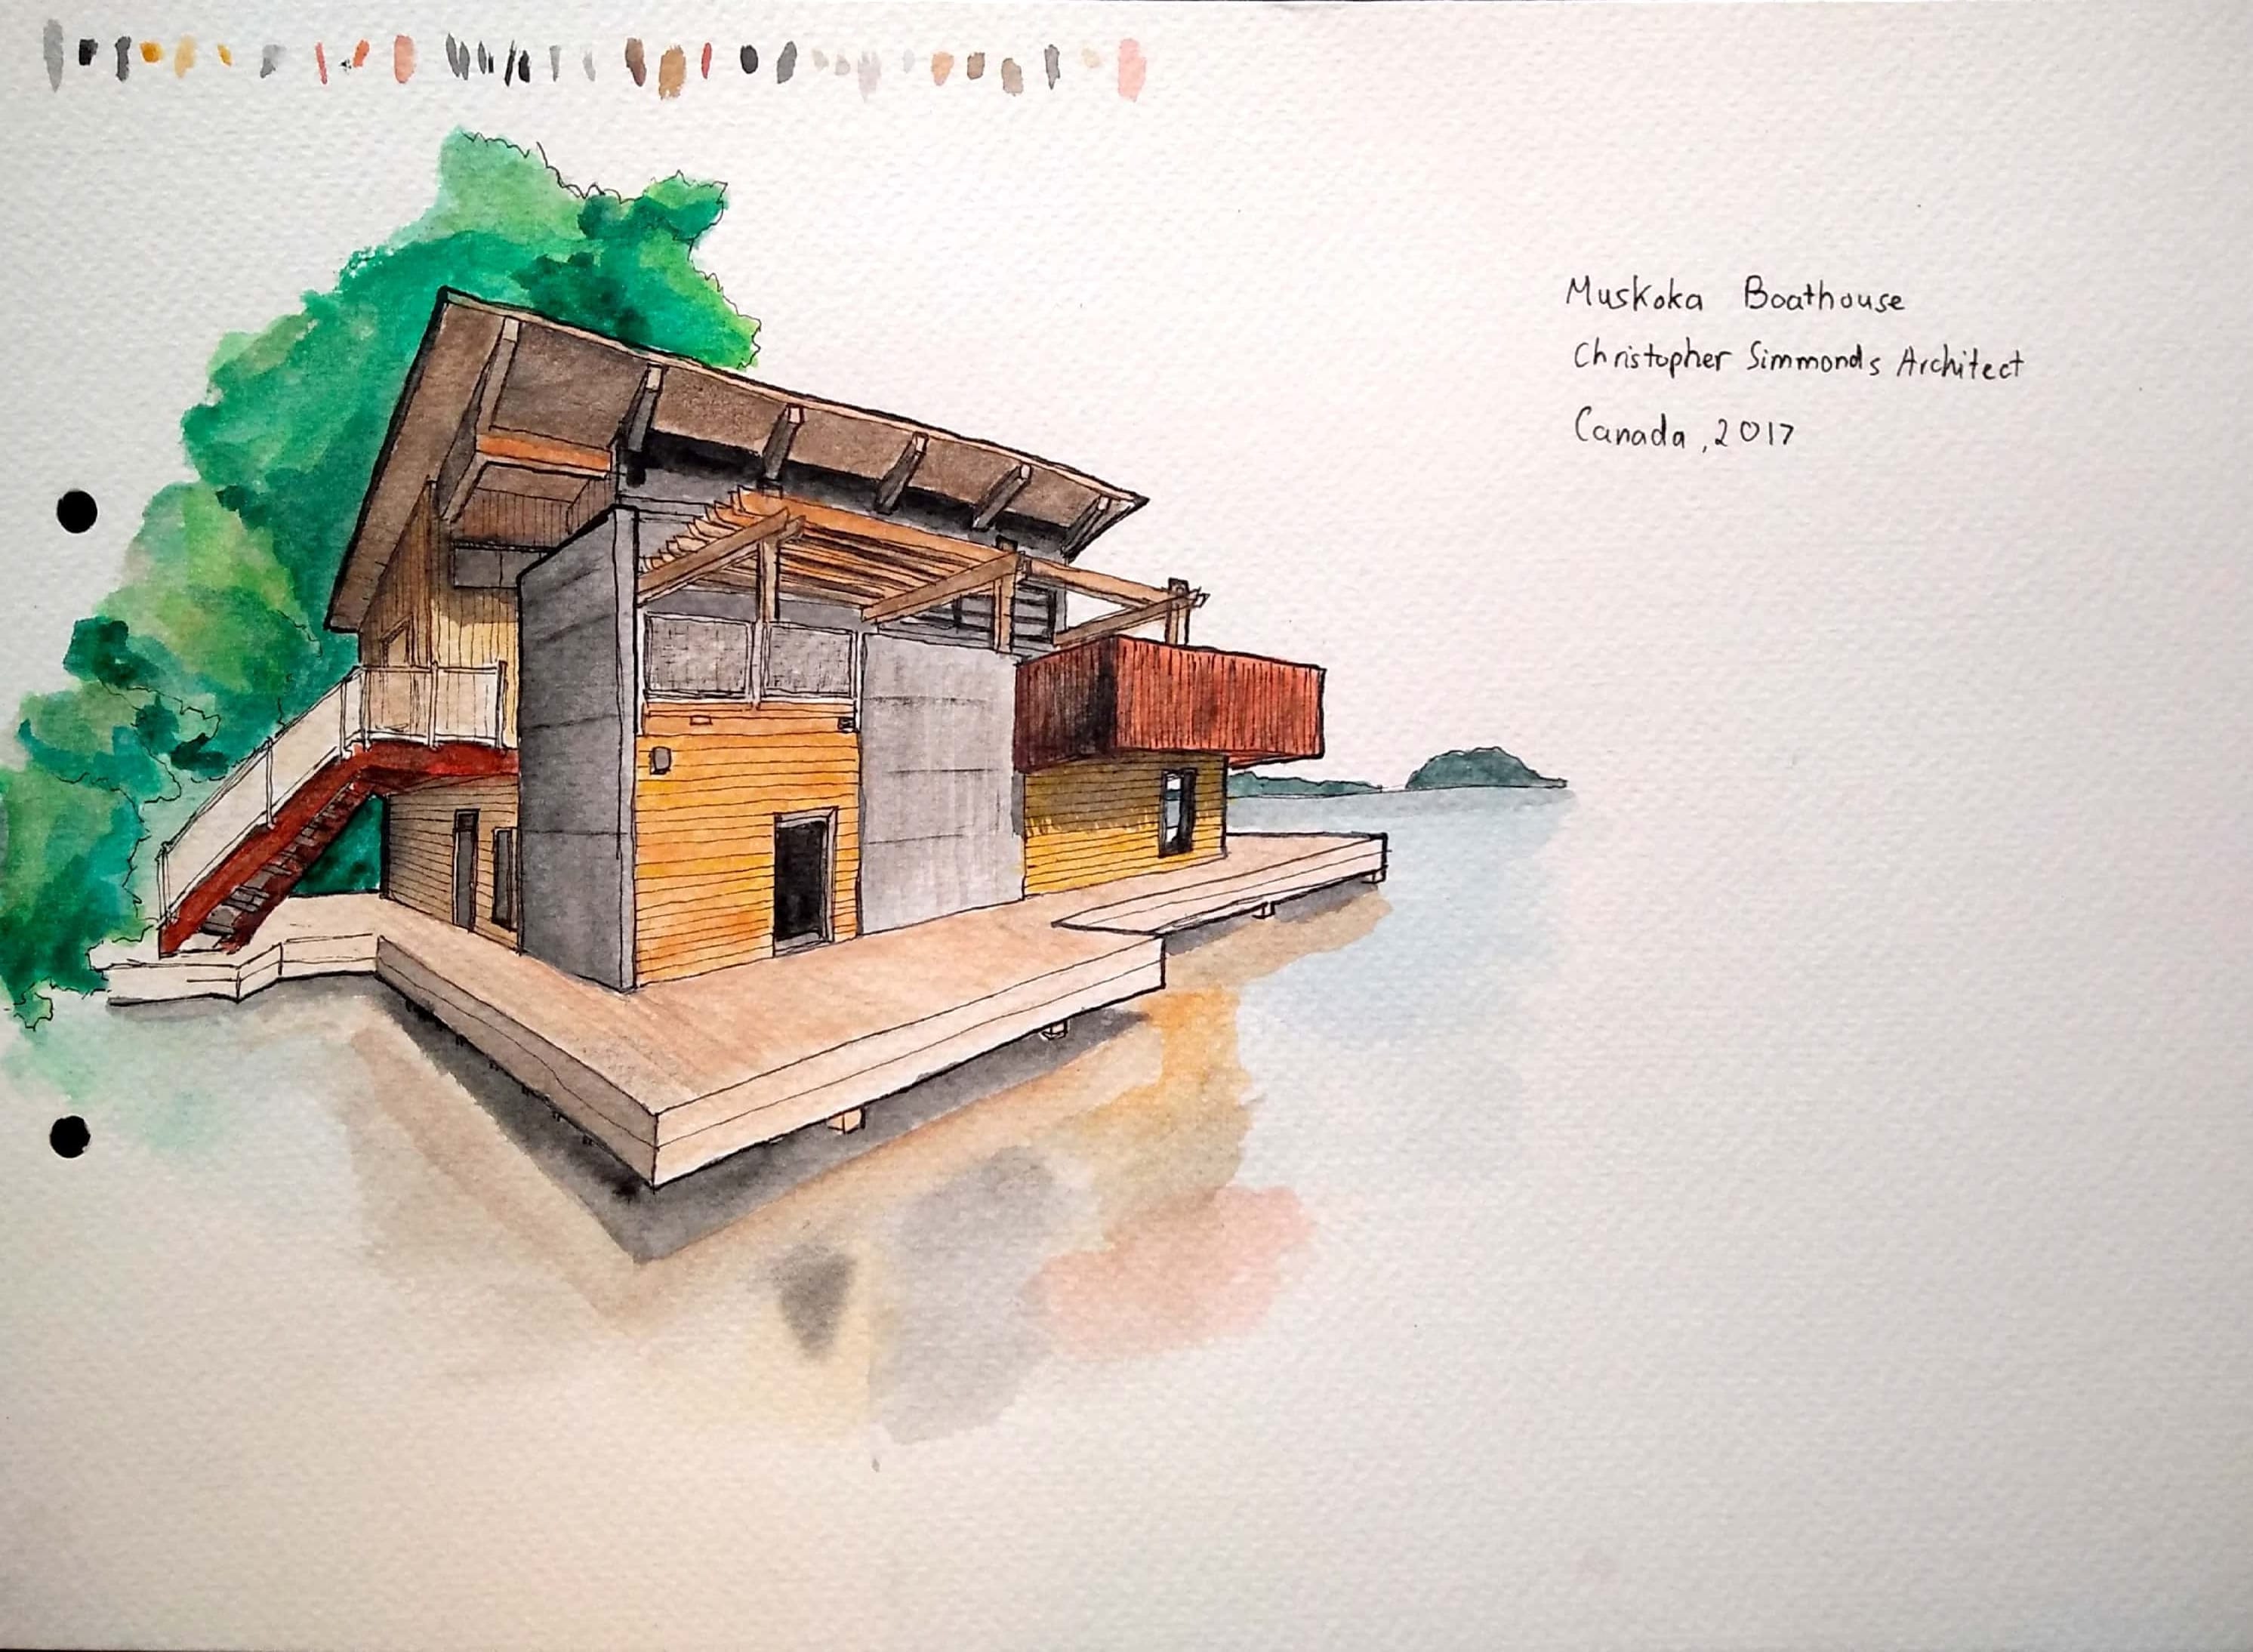 Muskoka Boathouse
Christopher Simmonds Architect
Canada, 2017